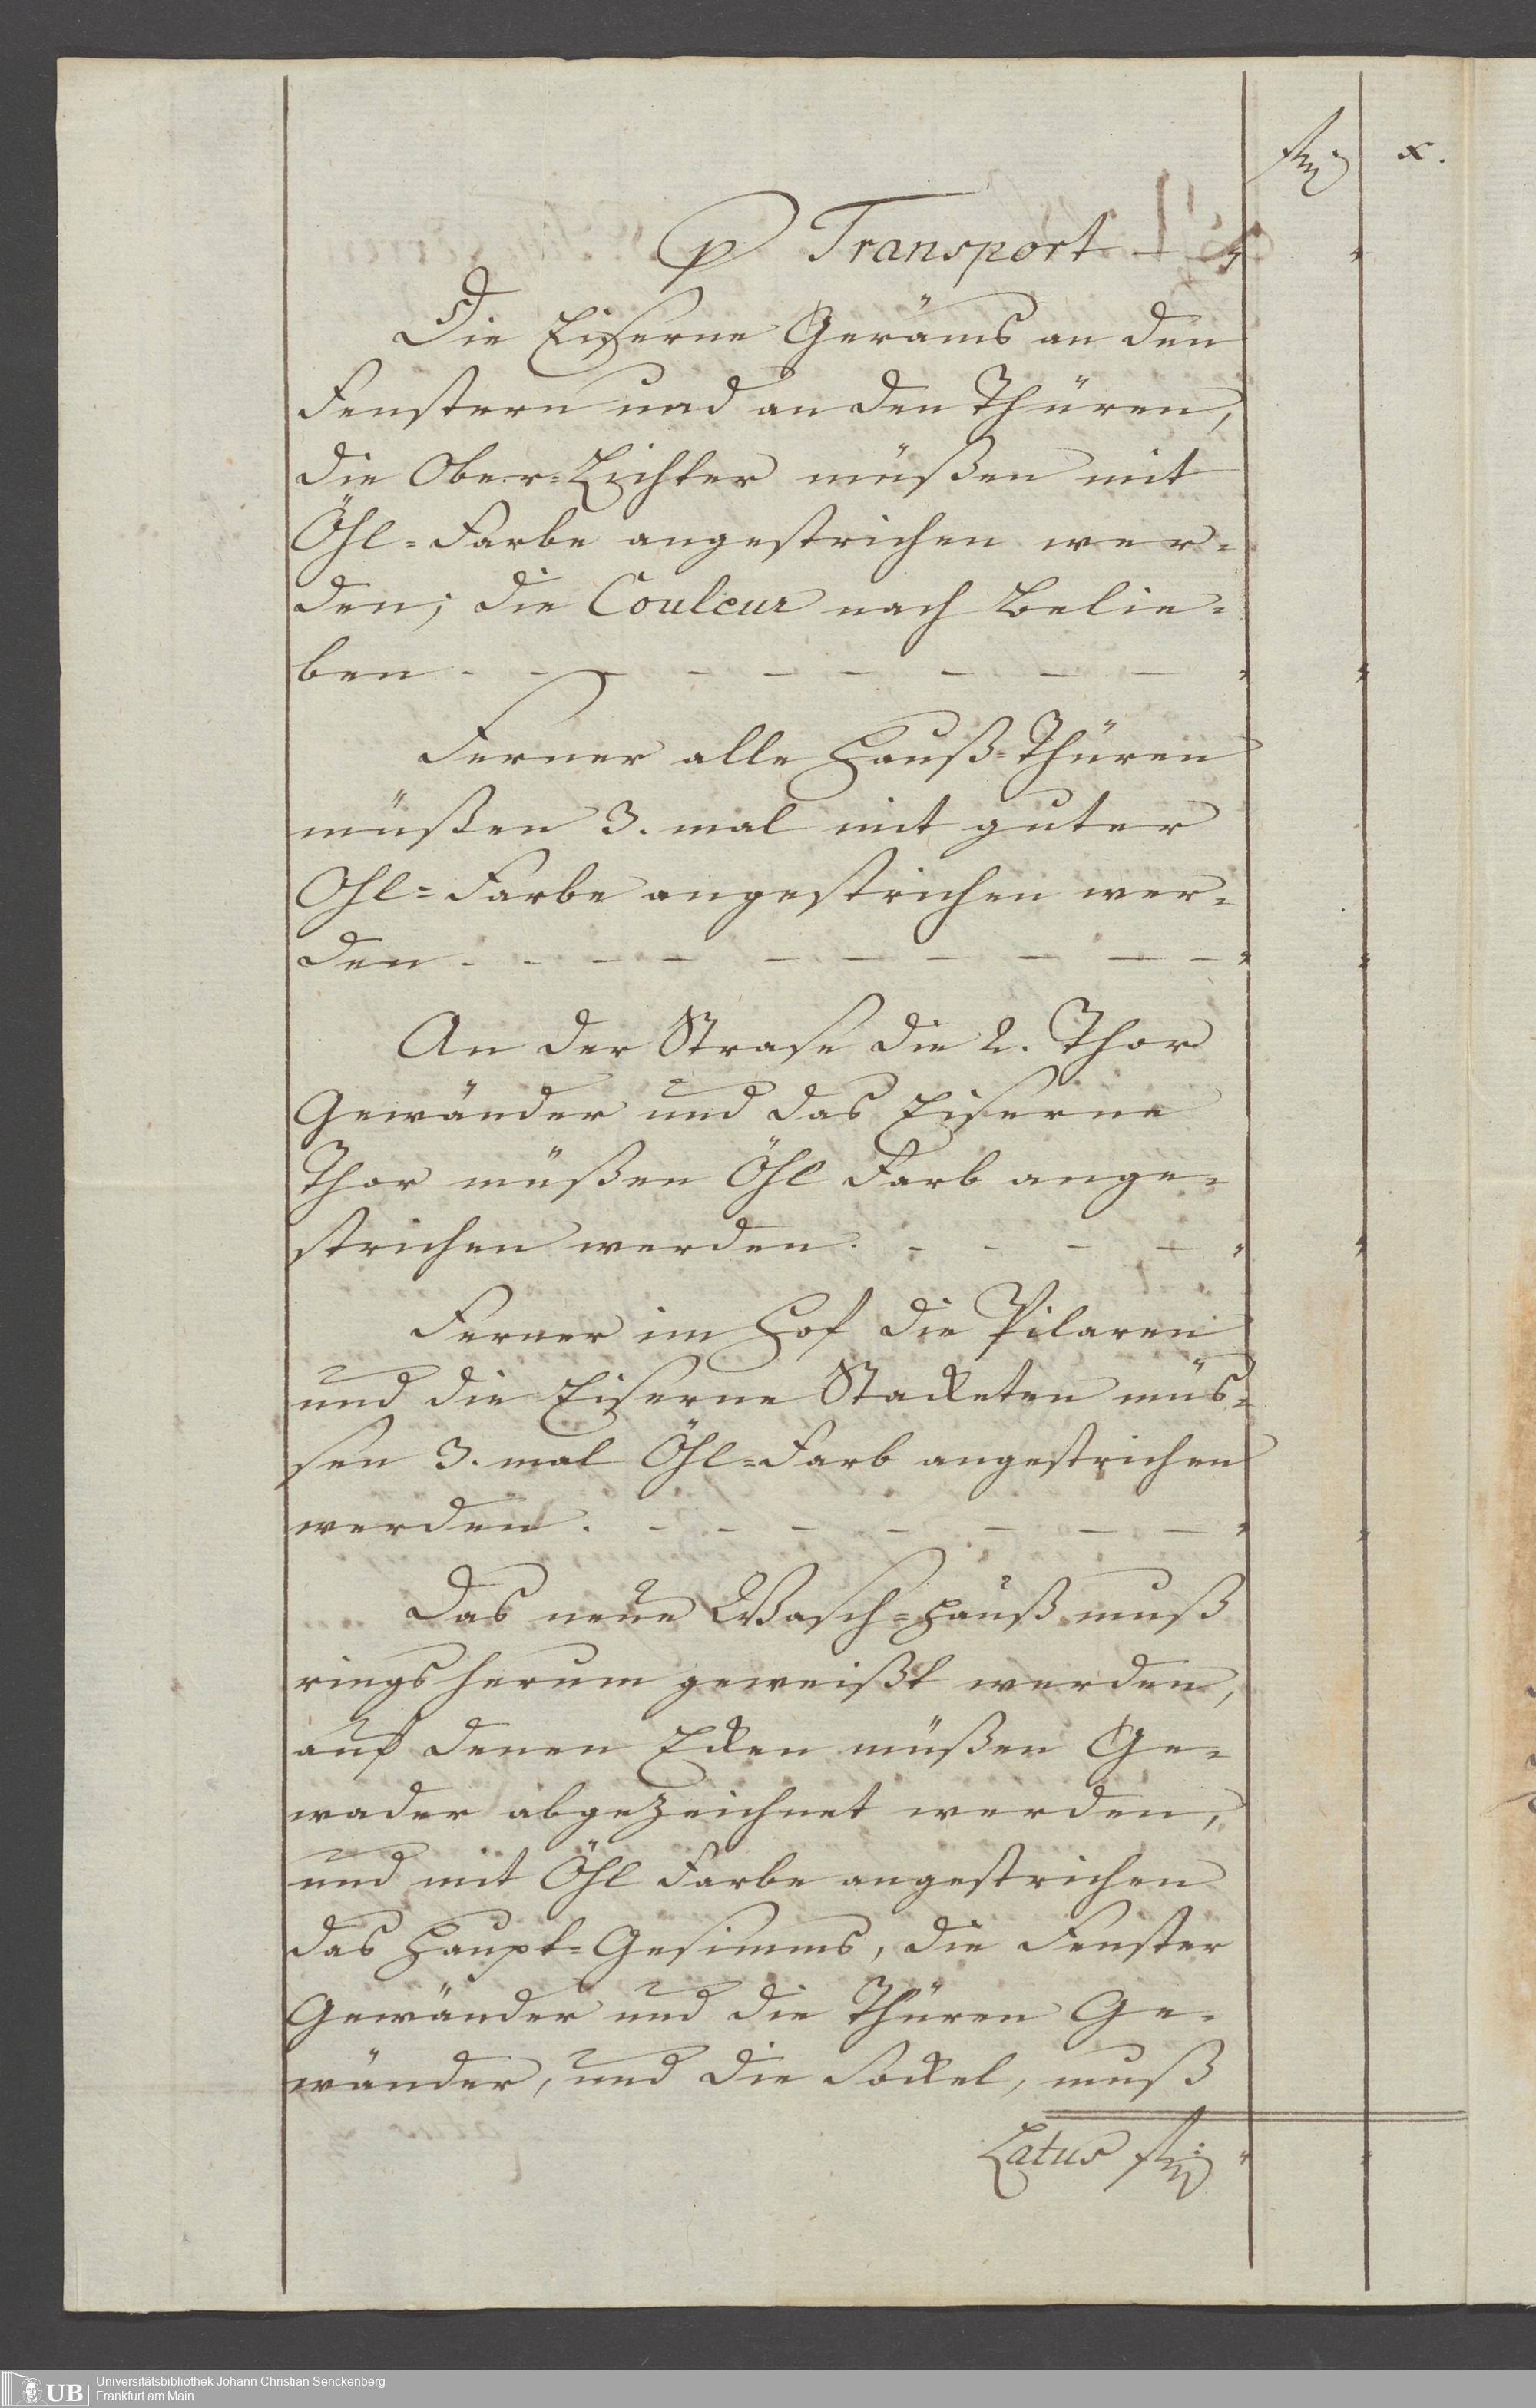 fl. x.
p Transport
Die Eiserne Geräms an den
Fenstern und an den Thüren,
die Ober=Lichter müßen mit
Öhl=Farbe angestrichen wer=
den; die Couleur nach Belie=
ben - - - - - - - - -
Ferner alle Hauß=Thüren
müßen 3. mal mit guter
Ohl=Farbe angestrichen wer=
den - - - - - - - - -
An der Strase die 2. Thor
Gewänder und das Eiserne
Thor müßen Öhl Farb ange=
strichen werden. - - - -
Ferner im Hof die Pilaren
und die Eiserne Stacketen müs=
sen 3. mal Öhl=Farb angestrichen
werden. - - - - - - -
Das neue Wasch=Hauß muß
ringsherum geweißt werden,
auf denen Ecken müßen Ge=
wader abgezeichnet werden,
und mit Öhl Farbe angestrichen
das Haupt=Gesimms, die Fenster
Gewänder und die Thüren Ge=
wänder, und die Sockel, muß
Latus fl.
UB Universitätsbibliothek Johann Christian Senckenberg
Frankfurt am Main